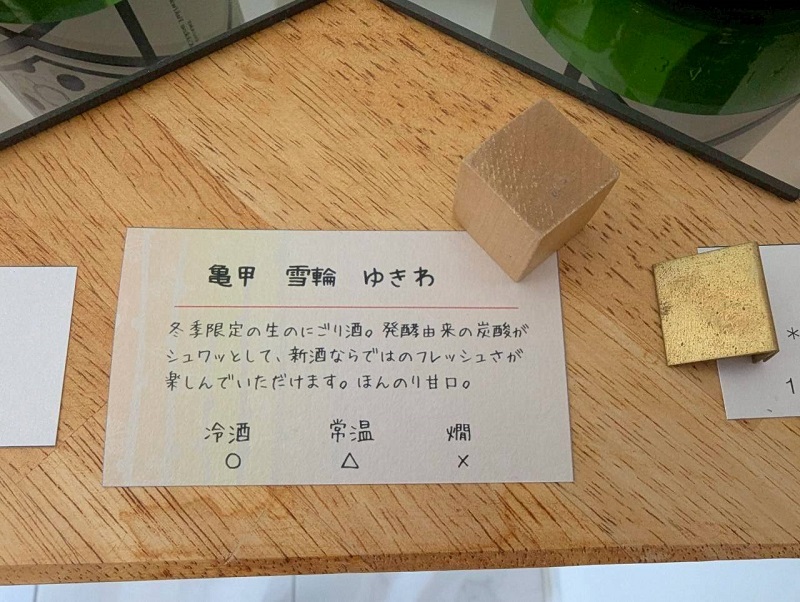 亀甲 雪輪 ゆきわ
冬季限定の生のにごり酒。発酵由来の炭酸が
シュワッとして、新酒ならではのフレッシュさが
楽しんでいただけます。ほんのり甘口。
冷酒 常温 燗
○ △ ×
*
1